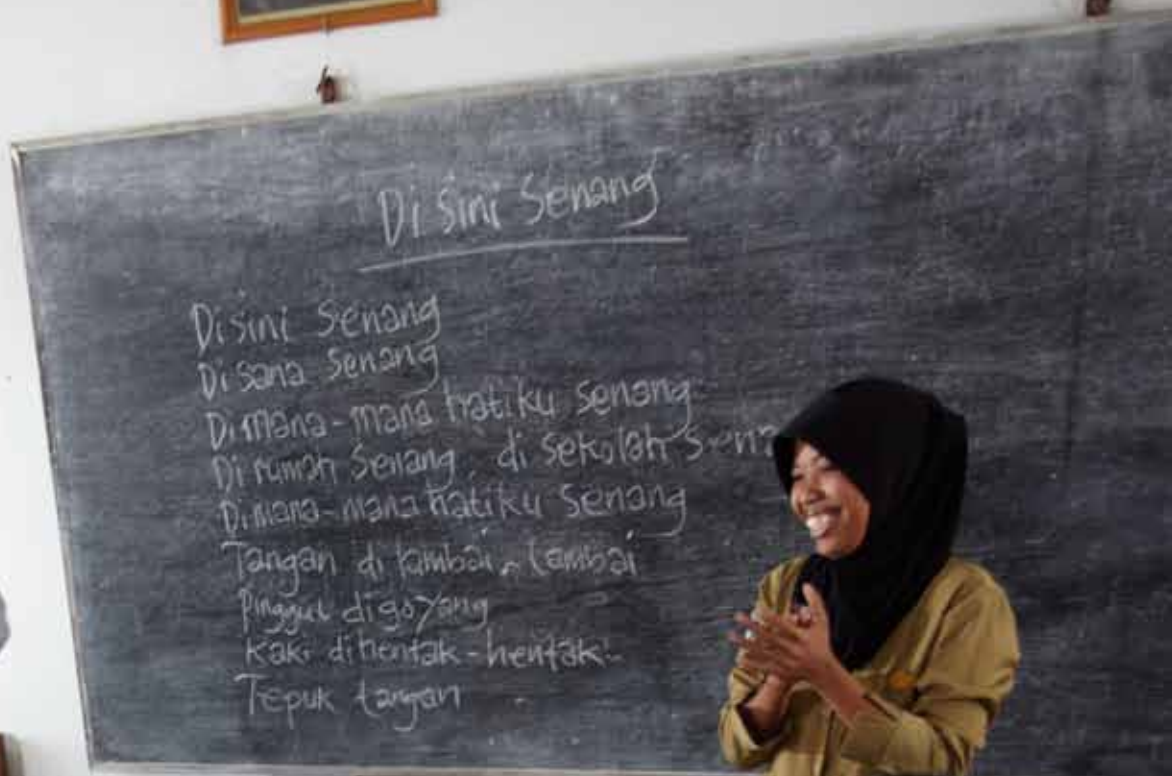 Di sini Senang
Disini Senang
Di sana Senang
Dimana-mana hatiku senang
Di rumah Senang, di sekolah sena
Dimana-mana hatiku senang
Tangan di lambai-lambai
Pinggul digoyang
Kaki dihentak-hentak
Tepuk tangan